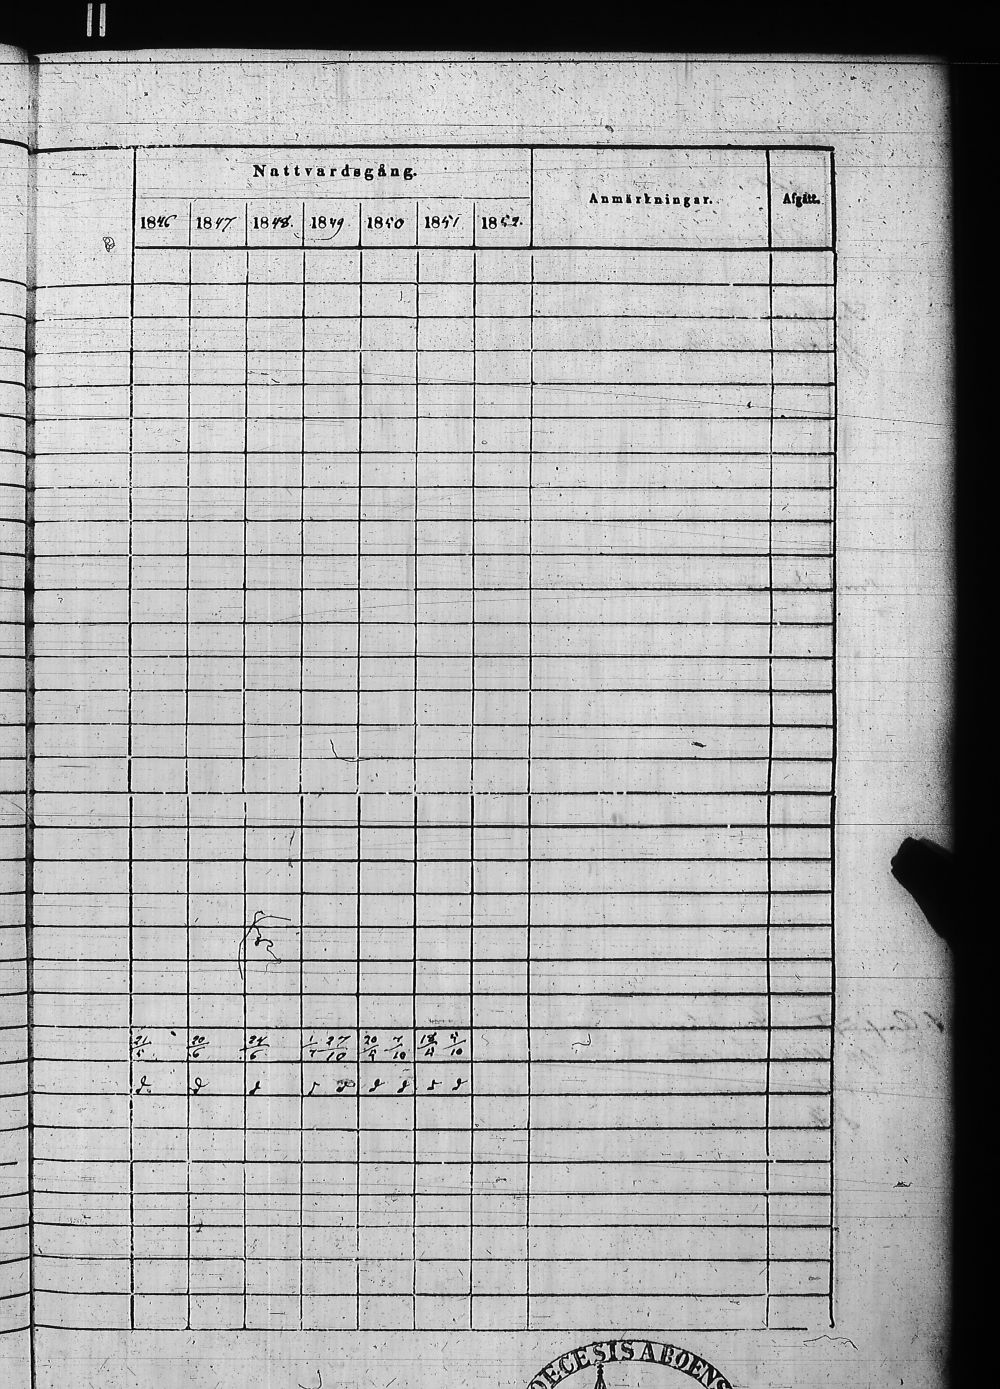 Nattvardsgång.
Anmärkningar.
Afgått.
1846 1847 1848. 1849 1850 1851 1852.
21/5 20/6 24/6 1/7 27/10 20/4 7/10 18/4 5/10
DECESIS ABOENS